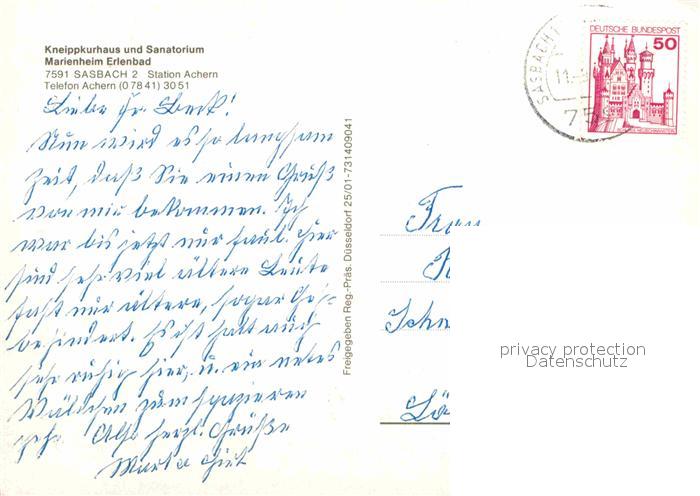 Kneippkurhaus und Sanatorium
Marienheim Erlenbad
7591 SASBACH 2 Station Achern
Telefon Achern (0 78 41) 30 51
Liebe Fr. Beck!
Nun wird es so langsam
Zeit, daß Sie einen Gruß
von mir bekommen. Ich
war bis jetzt nur faul. Hier
sind sehr viel ältere Leute
fast nur ältere, sogar Geh-
behindert. Es ist halt auch
sehr ruhig hier, u. ein nettes
Wäldchen zum spazieren
gehn. Also herzl. Grüße
Marta
Freigegeben Reg.-Präs. Düsseldorf 25/01-731409041
SASBACH
11.
75
DEUTSCHE BUNDESPOST
50
NEUSCHWANSTEIN
Frau
Schw
Lö
privacy protection
Datenschutz